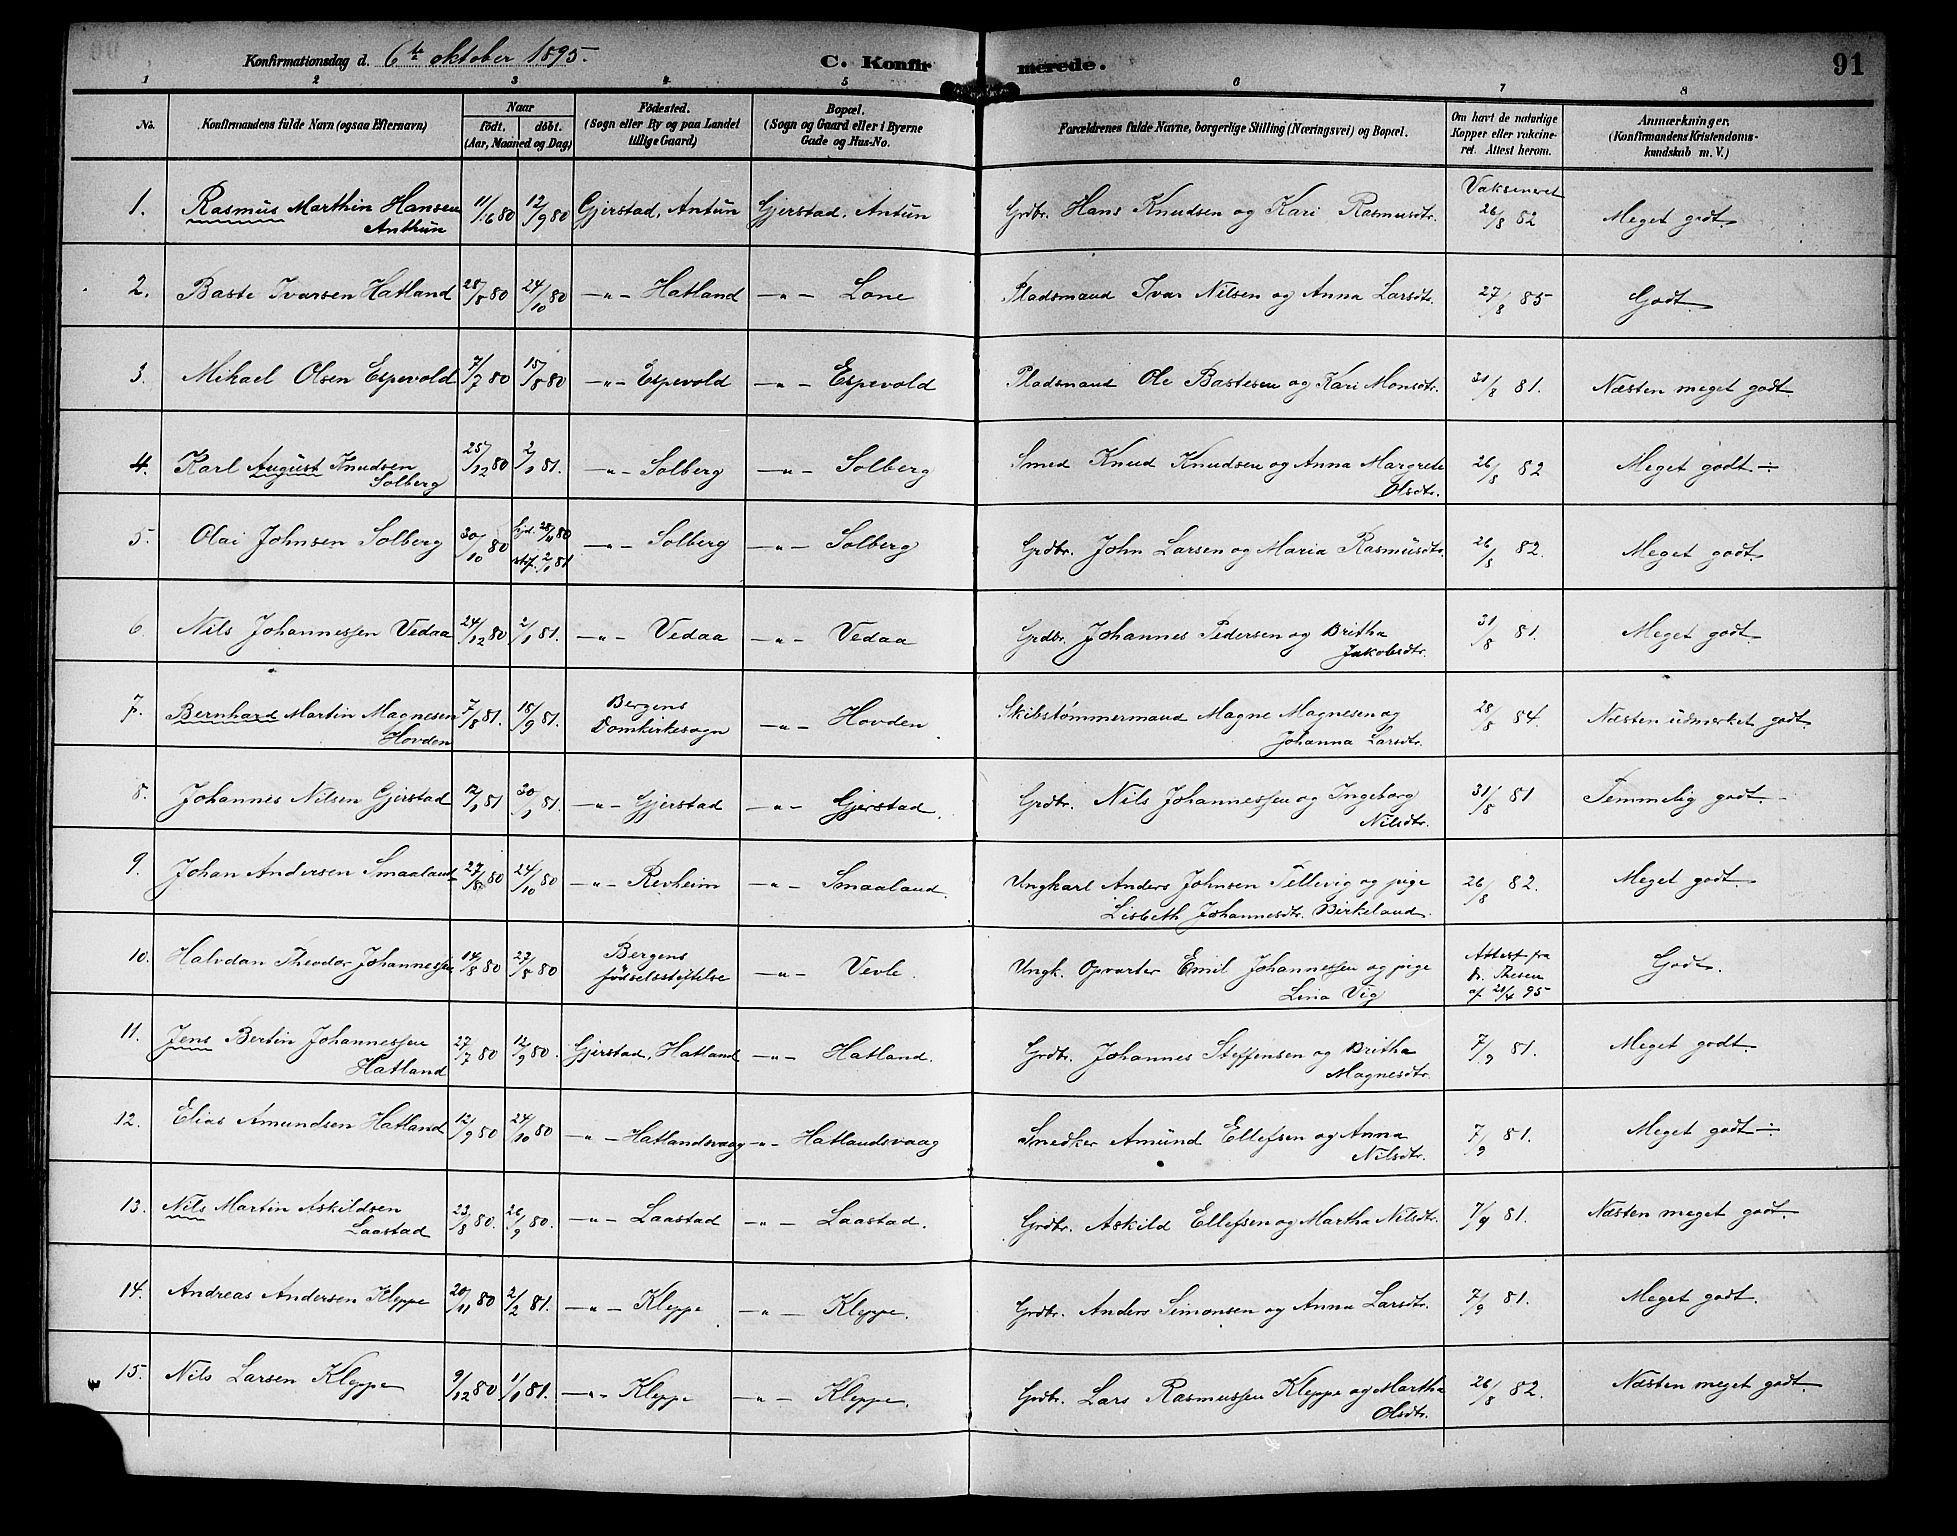 Konfirmationsdag d. 6te oktober 1895.
C. Konfirmerede.
91
1 2 3 4 5 6 7 8
No.
Konfirmandens fulde Navn (ogsaa Efternavn)
Naar
født. døbt.
(Aar, Maaned og Dag)
Fødested.
(Sogn eller By og paa Landet
tillige Gaard)
Bopæl.
(Sogn og Gaard eller i Byerne
Gade og Hus-No.
Forældrenes fulde Navne, borgerlige Stilling (Næringsvei) og Bopæl.
Om havt de naturlige
Kopper eller vakcine-
ret. Attest herom.
Anmærkninger.
(Konfirmandens Kristendoms-
kundskab m. V.)
1. Rasmus Marthin Hansen Anthun 11/6 80 12/9 80 Gjerstad, Antun Gjerstad, Antun Grdbr. Hans Knudsen og Kari Rasmusdtr. Vaksineret 26/8 82 Meget godt.
2. Baste Ivarsen Hatland 28/8 80 24/10 80 —„— Hatland —„— Lone Pladsmand Ivar Nilsen og Anna Larsdtr. 27/8 85 Godt.
3. Mikael Olsen Espevold 7/7 80 15/8 80 —„— Espevold —„— Espevold Pladsmand Ole Bastesen og Kari Monsdtr. 31/8 81. Næsten meget godt.
4. Karl August Knudsen Solberg 25/12 80 2/1 81. —„— Solberg —„— Solberg Smed Knud Knudsen og Anna Margrete Olsdtr. 26/8 82 Meget godt ÷
5. Olai Johnsen Solberg 30/10 80 hjd. 28/11 80 stf. 2/1 81 —„— Solberg —„— Solberg Grdbr. John Larsen og Maria Rasmusdtr. 26/8 82. Meget godt.
6. Nils Johannessen Vedaa 24/12 80 2/1 81. —„— Vedaa —„— Vedaa Grdbr. Johannes Pedersen og Britha Jakobsdtr. 31/8 81. Meget godt.
7. Bernhard Martin Magnesen Hovden 7/8 81. 18/9 81. Bergens Domkirkesogn —„— Hovden Skibstømmermand Magne Magnesen og Johanna Larsdtr. 28/8 84. Næsten udmerket godt.
8. Johannes Nilsen Gjerstad 12/1 81 30/1 81. —„— Gjerstad —„— Gjerstad. Grdbr. Nils Johannessen og Ingeborg Nilsdtr. 31/8 81 Temmelig godt.
9. Johan Andersen Smaaland 27/8 80 24/10 80 —„— Revheim —„— Smaaland. Ungkarl Anders Johnsen Tellevig og pige Lisbeth Johannesdtr. Birkeland. 26/8 82. Meget godt.
10. Halvdan Theodor Johannessen 14/8 80 27/8 80 Bergens fødselsstiftelse —„— Vevle. Ungk. Opvarter Emil Johannessen og pige Lina Vig Attest fra Dr. Thesen af 21/4 95 Godt.
11. Jens Bertin Johannessen Hatland 27/7 80 12/9 80. Gjerstad, Hatland —„— Hatland. Grdbr. Johannes Steffensen og Britha Magnesdtr. 7/9 81. Meget godt.
12. Elias Amundsen Hatland 12/9 80 24/10 80 —„— Hatlandsvaag —„— Hatlandsvaag Snedker Amund Ellefsen og Anna Nilsdtr. 7/9 81. Meget godt ÷
13. Nils Martin Askildsen Laastad 23/8 80. 26/9 80. —„— Laastad —„— Laastad. Grdbr. Askild Ellefsen og Martha Nilsdtr. 7/9 81. Næsten meget godt.
14. Andreas Andersen Kleppe 20/11 80 2/2 81. —„— Kleppe —„— Kleppe. Grdbr. Anders Simonsen og Anna Larsdtr. 7/9 81. Meget godt.
15. Nils Larsen Kleppe 9/12 80 1/1 81. —„— Kleppe —„— Kleppe. Grdbr. Lars Rasmussen Kleppe og Martha Olsdtr. 26/8 82. Næsten meget godt.